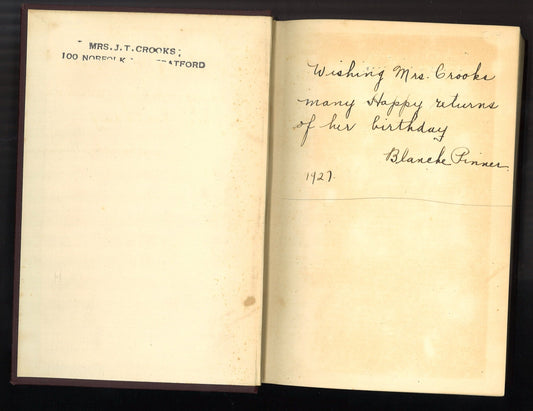 MRS. J. T. CROOKS,
100 NORFOLK STRATFORD
Wishing Mrs. Crooks
many Happy returns
of her birthday
Blanche Pinner.
1927.